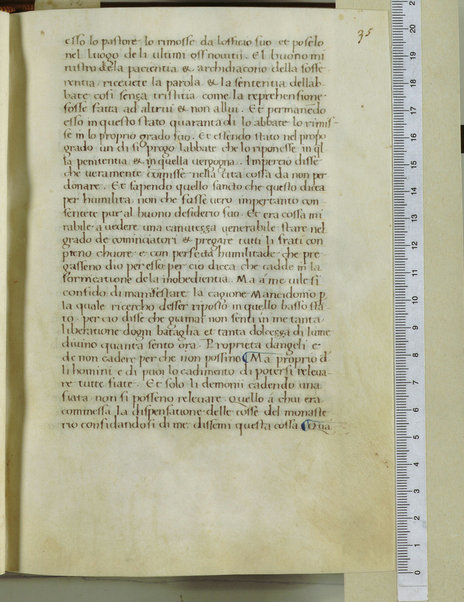 35
esso lo pastore lo rimosse da lofficio suo et poselo
nel luogo deli ultimi offnouitii. El buono mi
nistro della pacientia & archidiacono della soffe
rentia riceuete la parola & la sententia dellab
bate cosi senza tristitia come la reprehensione
fosse fatta ad altrui & non allui. Et permanedo
esso in questo stato quaranta di lo abbate lo rimis
se in lo proprio grado suo. Et essendo stato nel propo
grado un di si progo labbate che lo riponesse in ql
la penitentia & in quella uergogna. Impercio disse
che ueramente comisse nella cita cossa da non per
donare. Et sapendo quello sancto che questo dicea
per humilita, non che fusse uero impertanto con
sentete pur al buono desiderio suo. Et era cossa mi
rabile a uedere una canutezza uenerabile stare nel
grado de cominciatori & pregare tutti li frati con
pieno chuore e con perfecta humilitade che pre
gasseno dio per esso per cio dicea che cadde in la
fornicatione dela inobedientia. Ma a me uile si
confido di manifestare la cagione Mancidomo p
la quale ricercho desser riposto in quello basso sta
to. per cio disse che giamai non senti in me tanta
liberatione dogni bataglia et tanta dolcezza di lume
diuino quanta sento ora. Proprieta dangeli e
de non cadere per che non possino Ma proprio d
li homini e di puoi lo cadimento di potersi releua
re tutte fiate. Et solo li demonii cadendo una
fiata non si posseno releuare. Quello a chui era
commessa la dispensatione delle cosse del monaste
rio confidandosi di me dissemi questa cossa